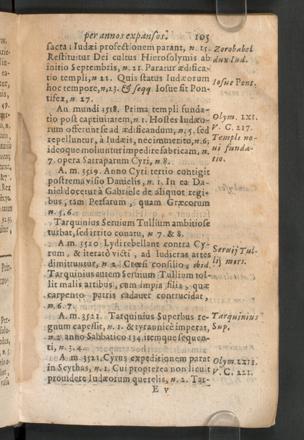 per annos expansos. 105
sacta i Iudæi profectionem parant, n. 15.
Restituitur Dei cultus Hierosolymis ab
initio Septembris, n. 21. Paratur ædifica-
tio templi, n. 22. Quis status Iudæorum
hoc tempore, n. 23. & seqq. Iosue fit Pon-
tifex, n. 27.
Zorobabel
dux Iud.
Iosue Pont.
An. mundi 3518. Prima templi funda-
tio post captiuitatem, n. 1. Hostes Iudæo-
rum offerunt se ad ædificandum, n. 5. sed
repelluntur, à Iudæis, nec immerito, n. 6.
ideoque moliuntur impedire fabricam, n.
7. opera Satraparum Cyri, n. 8.
Olym. LXI.
V. C. 217.
Templi no-
ui funda-
tio.
A. m. 3519. Anno Cyri tertio contigit
postrema visio Danielis, n. 1. In ea Da-
niel docetur à Gabriele de aliquot regi-
bus, tam Persarum, quam Græcorum
n. 5. 6.
Tarquinius Seruium Tullium ambitiose
turbat, sed irrito conatu, n. 7. & 8.
A. m. 3520 Lydi rebellant contra Cy-
rum, & iterato victi, ad ludicras artes
dimittuntur, n. 2. Crœsi consilio, ibid.
Tarquinius autem Seruium Tullium tol-
lit malis artibus, cum impia filia, quæ
carpento patris cadauer contrucidat,
n. 6. 7.
Seruij Tul-
lij mors.
A. m. 3521. Tarquinius Superbus re-
gnum capessit, n. 1. & tyrannicè imperat,
n. 2. anno Sabbatico 134. itemque sequen-
ti, n. 3. 4.
Tarquinius
Sup.
A. m. 3522. Cyrus expeditionem parat
in Scythas, n. 1. Cui propterea non licuit
prouidere Iudæorum querelis, n. 2. Tar-
Olym. LXII.
V. C. 221.
E v